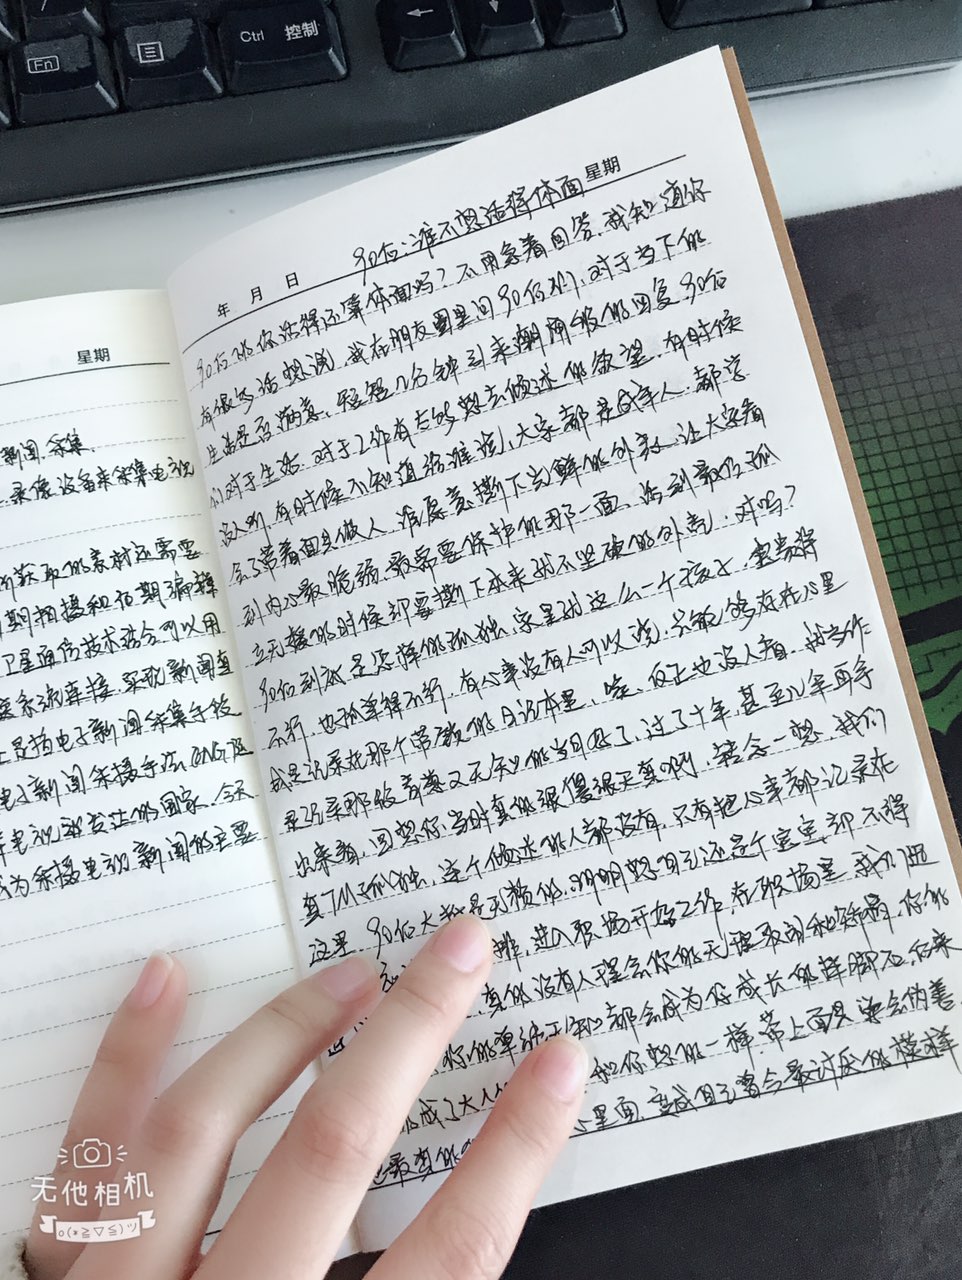 Fn
Ctrl 控制
星期
新闻采集
录像设备来采集电视
所获取的素材还需要
期拍摄和后期编辑
卫星通信技术结合可以用
系统连接，实现新闻直
电子新闻采集手段
电子新闻采摄手法ENG
电视到发达的国家，今天
成为采摄电视新闻的主要
年 月 日 90后：谁不想活得体面 星期
90后的你活得还算体面吗？不用急着回答，我知道你
有很多话想说，我在朋友圈里问90后们，对于当下的
生活是否满意，短短几分钟引来潮涌般的回复，90后
们对于生活，对于工作有太多想去倾述的欲望，有时候
没人听，有时候不知道给谁说，大家都是成年人，都学
会了带着面具做人，谁愿意撕下光鲜的外表，让大家看
到内心最脆弱，最需要保护的那一面，活到最后孤
立无援的时候却要撕下本来就不坚硬的外壳，对吗？
90后到底是怎样的孤独，家里就这么一个孩子，宝贵得
不行，也孤单得不行，有心事没有人可以说，只能够存在心里
或是记录在那个带锁的日记本里，哎，反正也没人看，就当作
是记录那般青春又无知的当日好了，过了十年，甚至几年再拿
出来看，回想你当时真的很傻很天真啊，转念一想，我们
真TM孤独，连个倾述的人都没有，只有把心事都记录在
这里，90后大都是无赖的，明明想自己还是个宝宝，却不得
进入职场开始工作，在职场里，我们
真的没有人理会你的无理取闹和矫情，你的
你的单纯无知都会成为你成长的绊脚石，后来
成了大人 和你想的一样，带上面具，学会伪善
心里面，变成自己曾今最讨厌的模样
最真的
无他相机
o(*≧▽≦)ツ